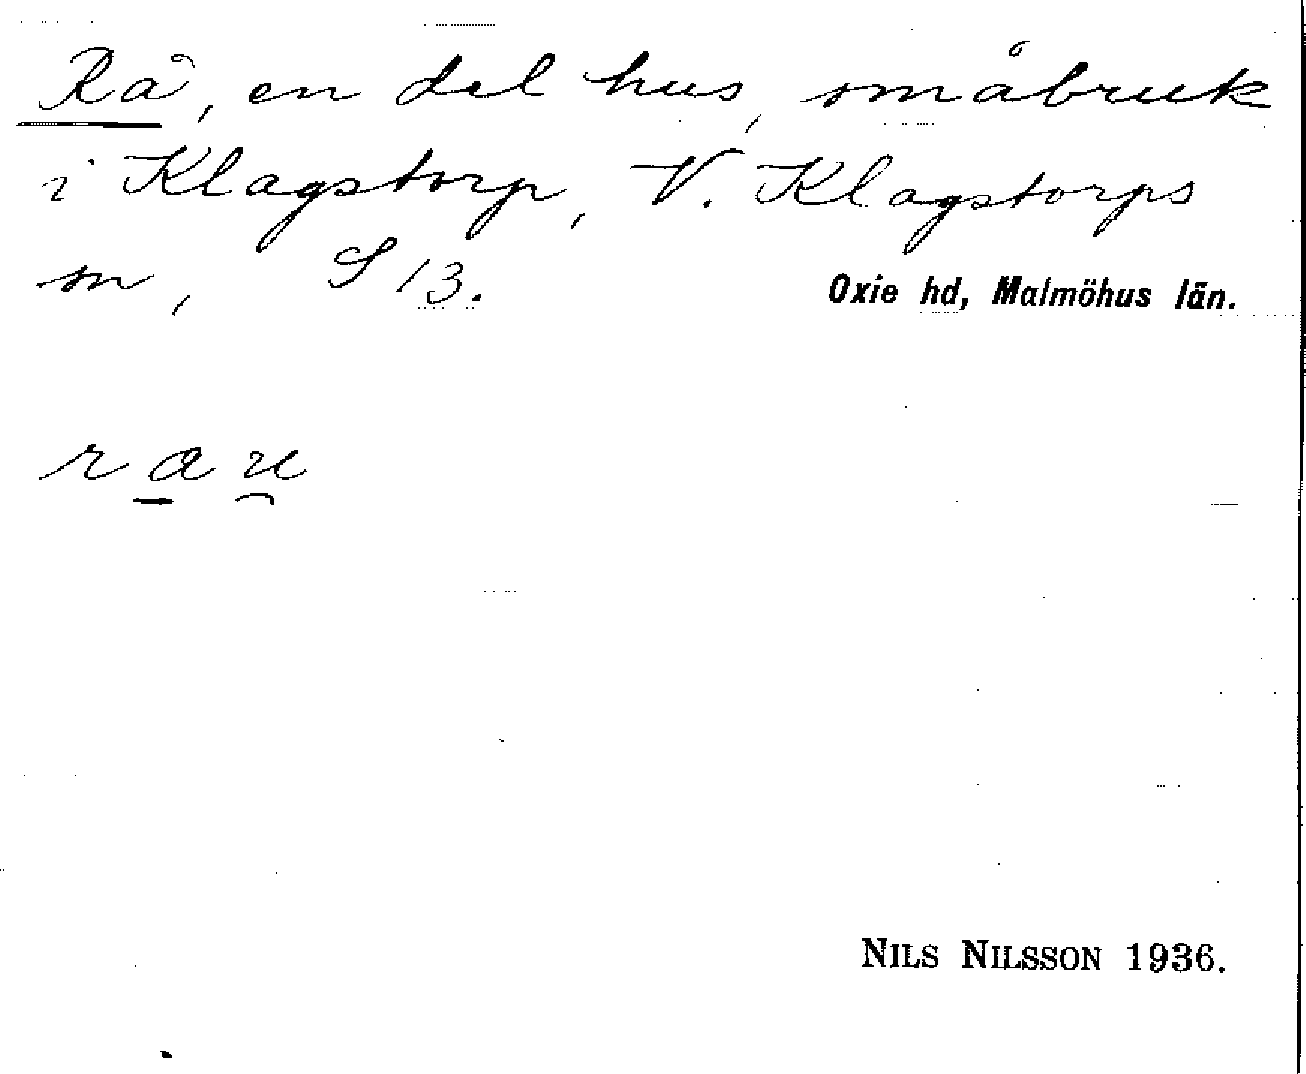 Rå, en del hus, småbruk
i Klagstorp, V. Klagstorps
sn, S 13. Oxie hd, Malmöhus län.
ra̱u̯
NILS NILSSON 1936.